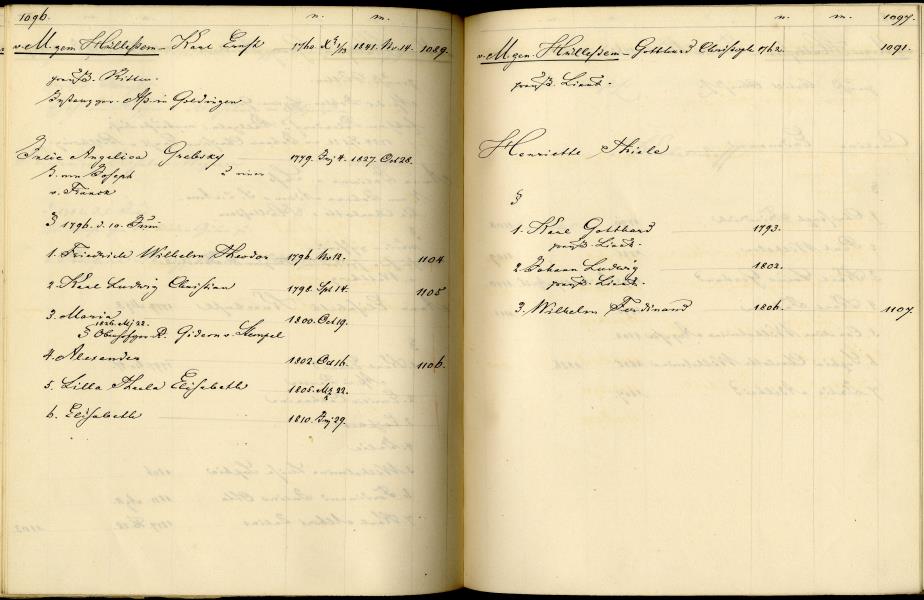 1096. n. m.
v. M. gen. Hüllessem - Karl Ernst 1760. 1841. Nv. 14. 1089.
preuß. Rittm.
Instanzger. Aß. in Goldingen
Julie Angelica Grebsky 1779. 4. 1827. Oct 28.
Joseph
v. Franck
1796. d. 10. Juni
1. Friedrich Wilhelm Theodor 1796. Nv 12. 1104
2. Karl Ludwig Christian 1798. Spt 14. 1105
3. Maria 1800. Oct 19.
1826. Mz 22.
Oberhofger. D. Gideon v. Stempel
4. Alexander 1802. Oct 16. 1106.
5. Lilla Thecla Elisabeth 1805. Mz 22.
6. Elisabeth 1810. 29.
n. m. 1097.
v. M. gen. Hüllessem - Gotthard Christoph 1762. 1091.
preuß. Lieut.
Henriette Thiele
1. Karl Gotthard 1793.
preuß. Lieut.
2. Johann Ludwig 1802.
preuß. Lieut.
3. Wilhelm Ferdinand 1806. 1107